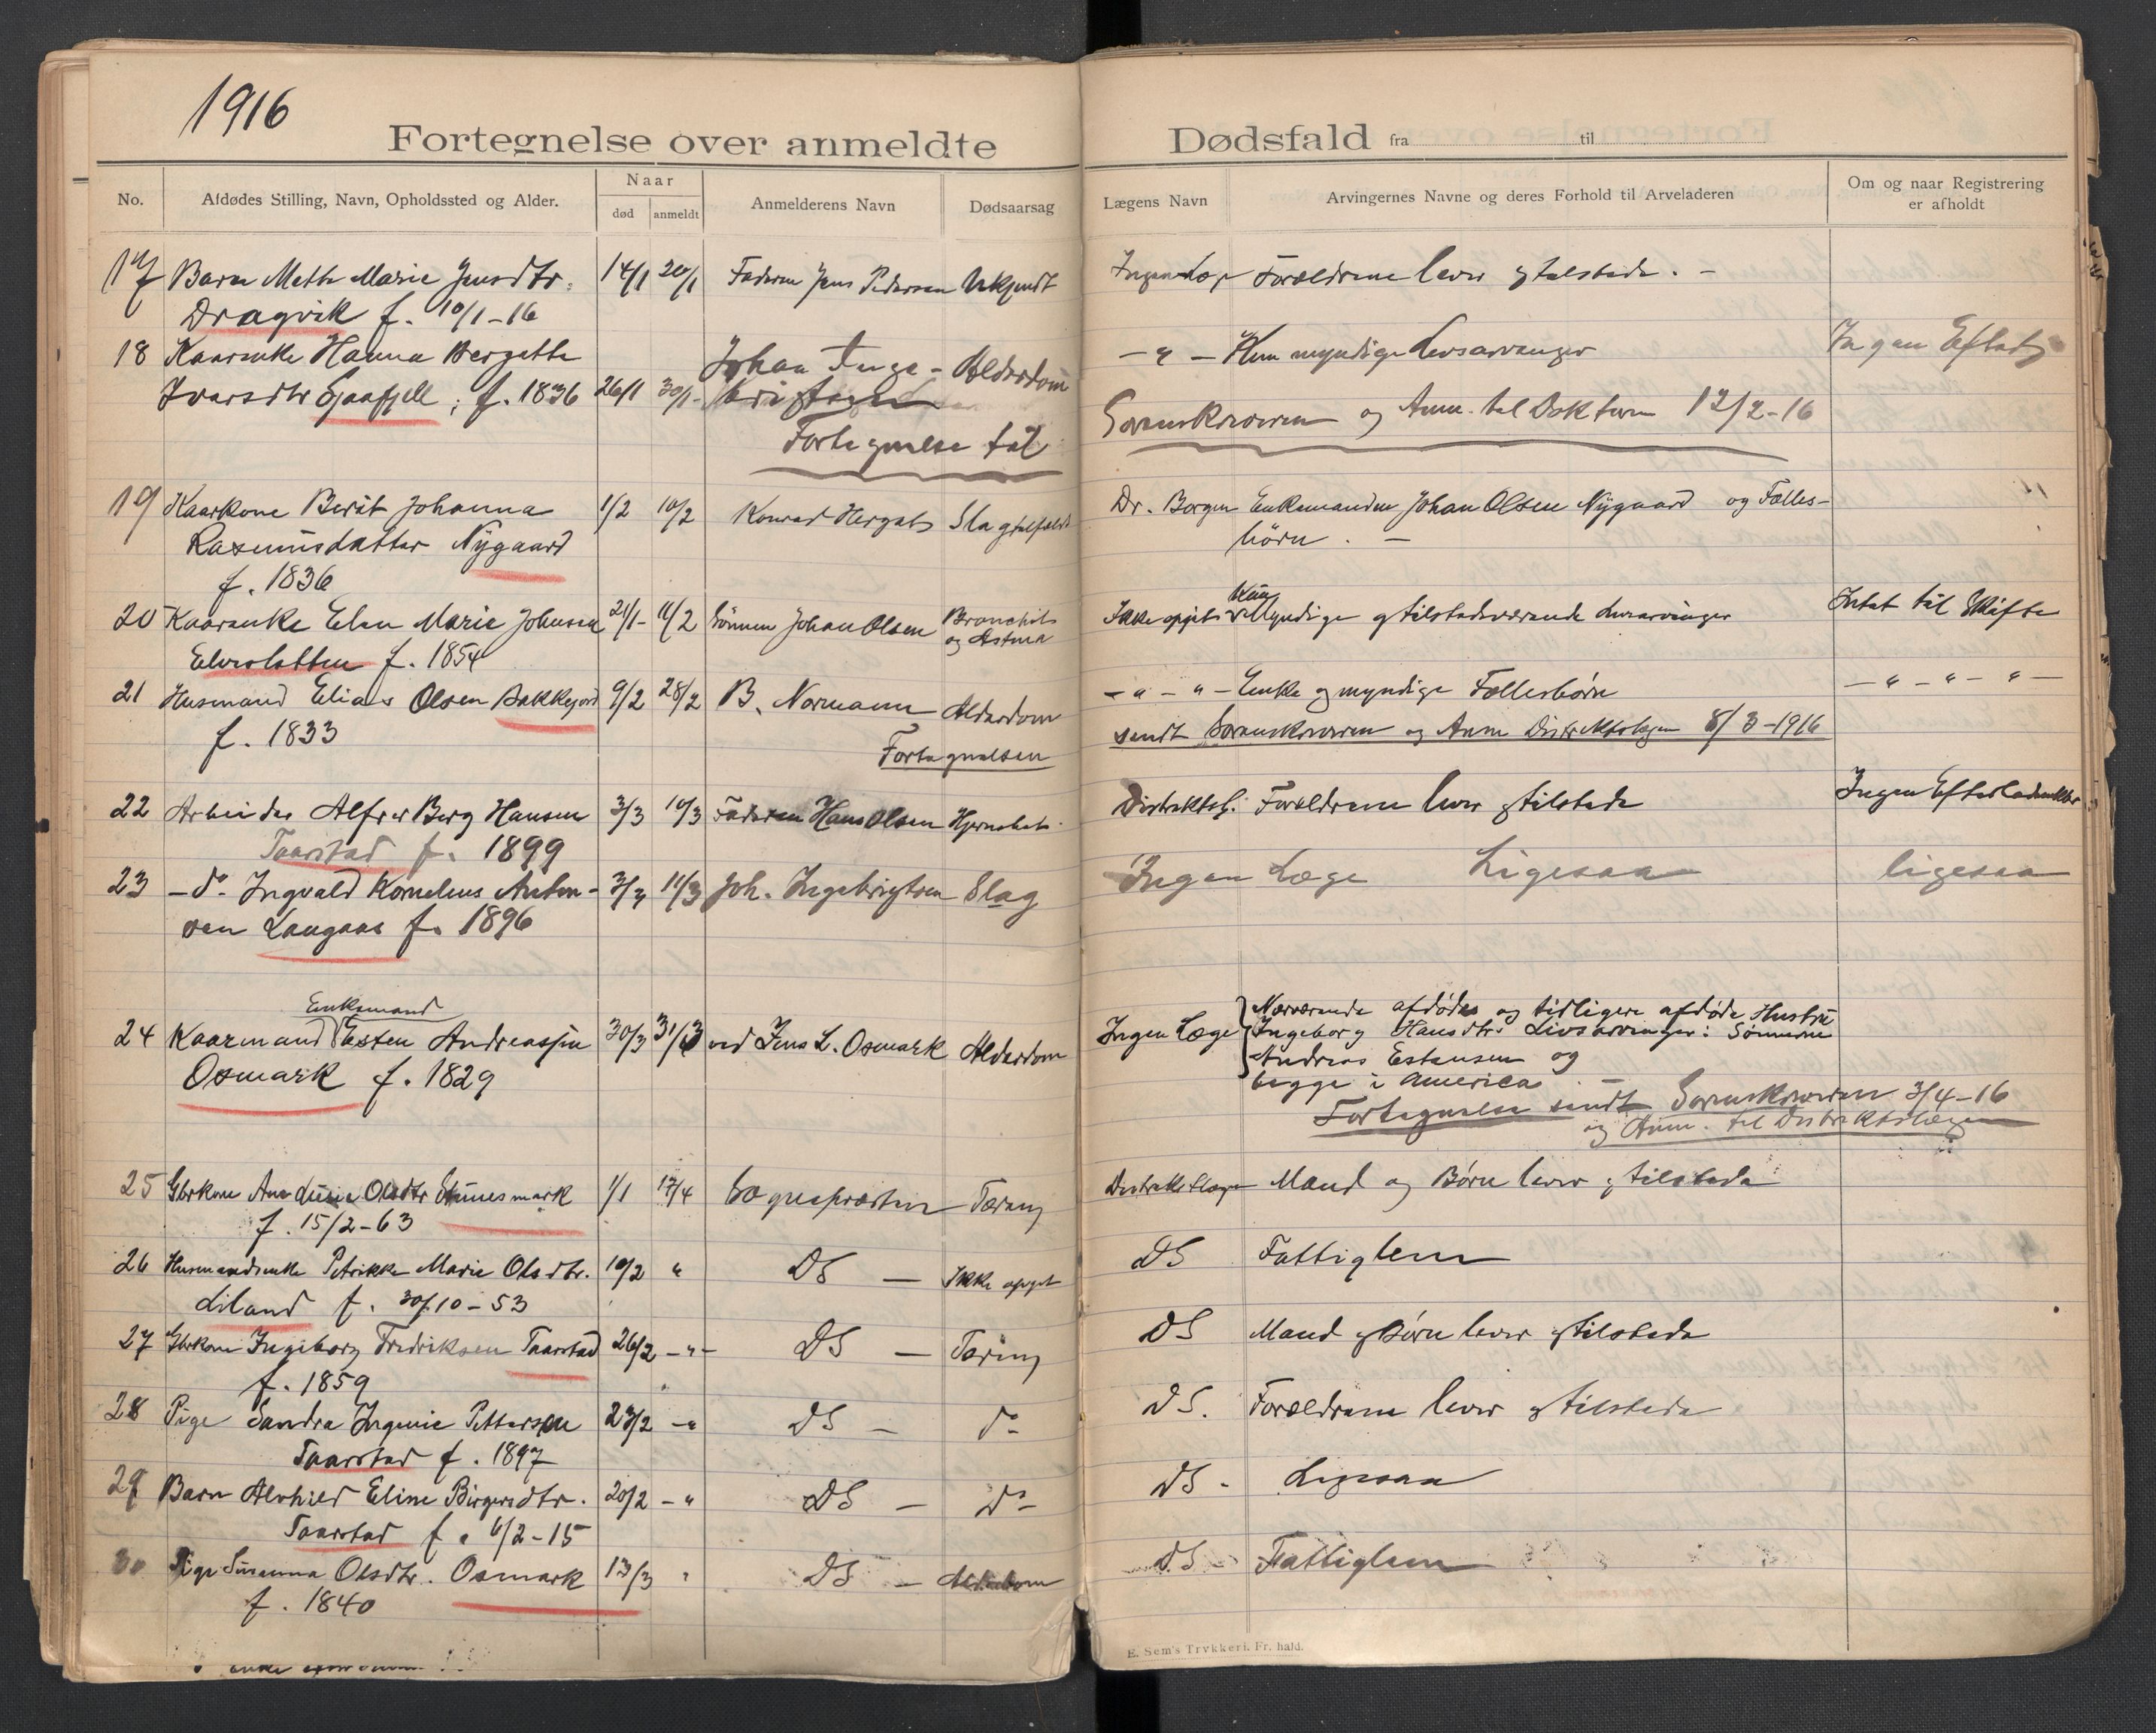 1916
Fortegnelse over anmeldte Dødsfald fra til
No. Afdødes Stilling, Navn, Opholdssted og Alder. Naar død anmeldt Anmelderens Navn Dødsaarsag Lægens Navn Arvingernes Navne og deres Forhold til Arveladeren Om og naar Registrering er afholdt
17 Barn Meth Marie Jensdtr. 14/1 20/1 Faderen Jens Pedersen Ukjendt Ingen Læge Forældrene lever og tilstede. -
Dragvik f. 10/1-16
18 Kaarenke Hanna Bergette Johan Inge- Alderdom - " - Kun myndige Livsarvinger Ingen Efterl.
Ivarsdtr f. 1836 26/1 30/1
Fortegnelse til Sorenskriveren og Anm. til Doktoren 12/2-16
19 Kaarkone Berit Johanna 1/2 10/2 Konrad Slagtilfælde Dr. Borgen Enkemanden Johan Olsen Nygaard og Fælles-
Rasmusdatter Nygaard børn. -
f. 1836
20 Kaarenke Elen Marie Johnsen 21/1- 11/2 Sønnen Johan Olsen Bronchit og Astma Ikke opgit Kun Myndige og tilstedeværende Livsarvinger Intet til Skifte
Elvesletten f. 1854
21 Husmand Elias Olsen Bakkejord 9/2 28/2 B. Normann Alderdom - " - " - Enke og myndige Fællesbørn - " - " - " -
f. 1833 Fortegnelsen sendt Sorenskriveren og Anm Distriktslægen 8/3-1916
22 Arbeider Alfred Berg Hansen 3/3 10/3 Faderen Hans Olsen Distriktsl. Forældrene lever og tilstede Ingen Efterladenskber
Taarstad f. 1899
23 - do - Ingvald Kornelius Anton- 11/3 Joh. Ingebrigtsen Slag Ingen Læge Ligesaa ligesaa
sen Langaas f. 1896
Enkemand
24 Kaarmand Esten Andreassen 30/3 31/3 ved Jens L. Osmark Alderdom Ingen Læge Nærværende afdødes og tidligere afdøde Hustru
Osmark f. 1829 Ingeborg Hansdtrs Livsarvinger: Sønnerne
Andreas Estensen og
begge i America. -
Fortegnelse sendt Sorenskriveren 3/4-16
og Anm. til Distriktslægen
25 Gbrkone Ane Olsdtr 1/1 17/4 Sognepræsten Tæring Distriktslægen Mand og Børn lever og tilstede
f. 15/2-63
26 Husmandsenke Petrikke Marie Olsdtr. 10/2 " DS - Ikke opgit DS Fattiglem
Liland f. 30/10-53
27 Gbrkone Ingeborg Fredriksen Taarstad 26/2 - " - DS - Tæring DS Mand og Børn lever og tilstede
f. 1859
28 Pige Sandra Ingenie Pettersen 23/2 - " DS - do DS. Forældrene lever og tilstede
Taarstad f. 1897
29 Barn Alvhild Eline Birgersdtr. 20/2 - " DS - do DS - Ligesaa
Taarstad f. 6/2-15
30 Pige Susanna Olsdtr. Osmark 13/3 " DS - Alderdom DS - Fattiglem
f. 1840
E. Sem's Trykkeri. Fr. hald.